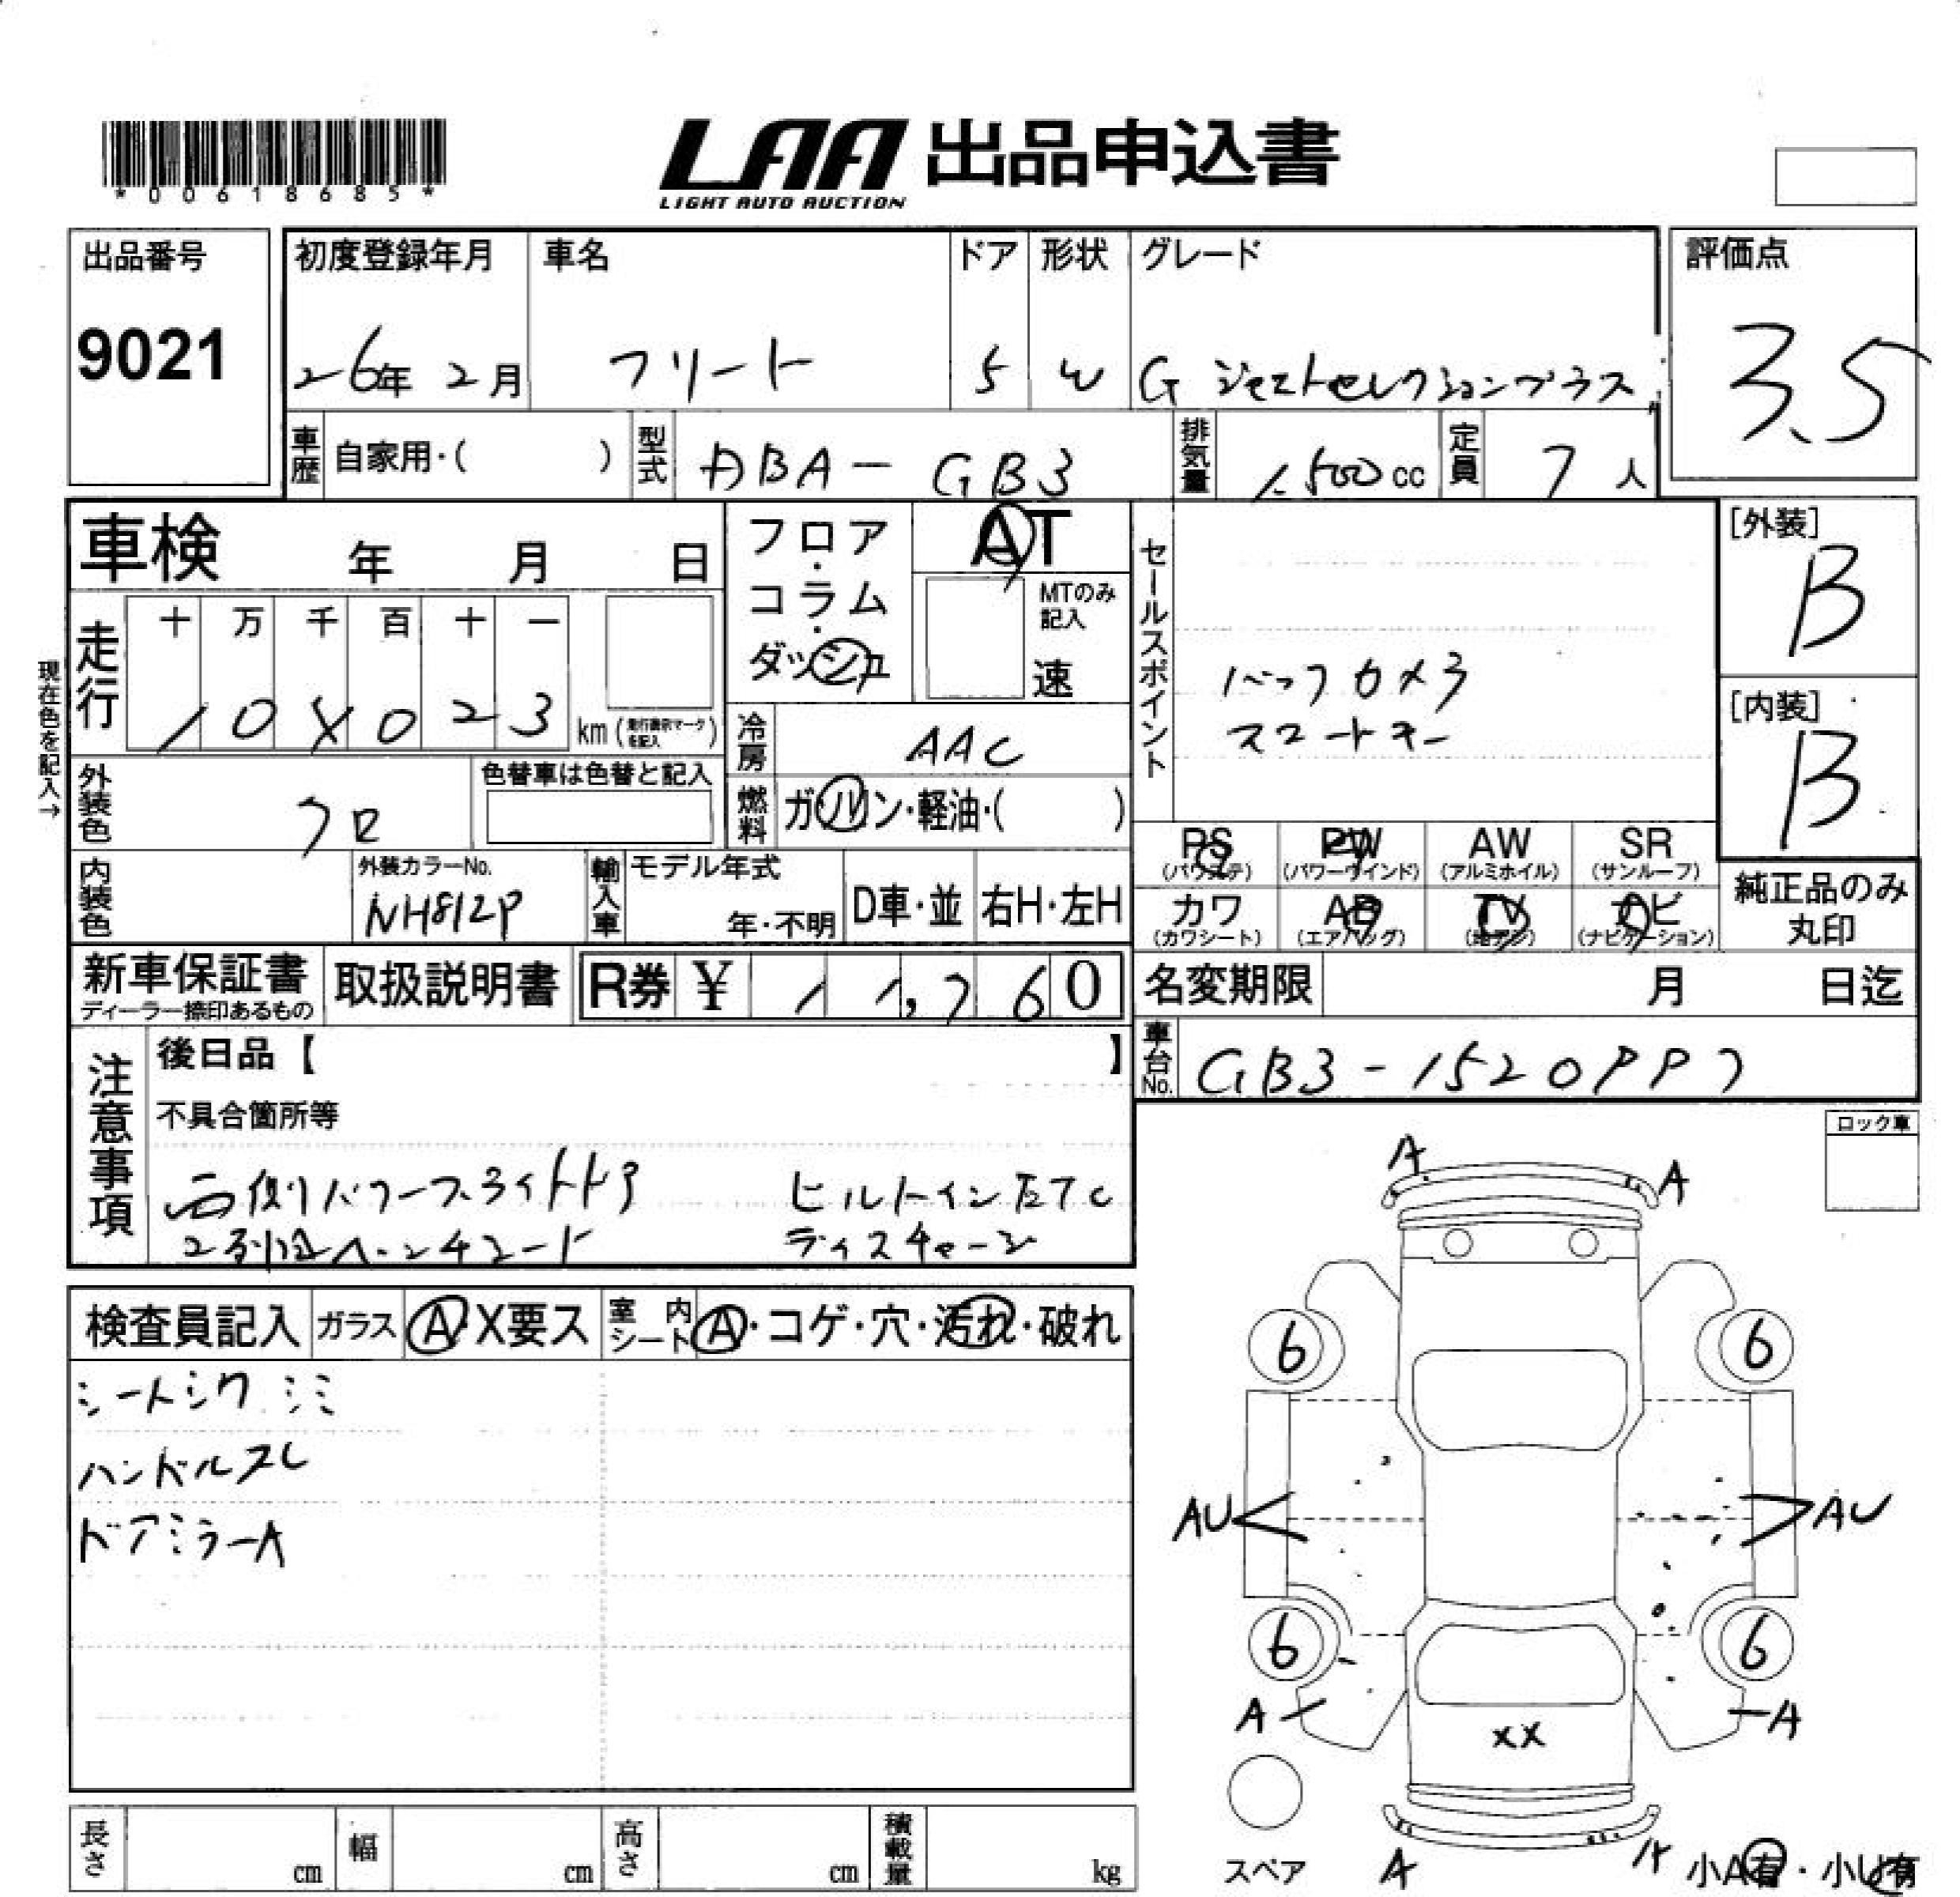 *00618685*
LAA 出品申込書
LIGHT AUTO AUCTION
出品番号 初度登録年月 車名 ドア 形状 グレード 評価点
9021 26年 2月 フリード 5 W G ジャストセレクションプラス 3.5
車歴 自家用・( ) 型式 DBA-GB3 排気量 1500cc 定員 7人
車検 年 月 日 フロア・コラム・ダッシュ AT セールスポイント [外装]
B
走行 十 万 千 百 十 一 MTのみ記入 速
10 0 2 3 km (走行表示マークを記入) バックカメラ [内装]
現在色を記入→ 冷房 AAC スマートキー B
外装色 クロ 色替車は色替と記入 燃料 ガソリン・軽油・( )
PS PW AW SR
(パワステ) (パワーウインド) (アルミホイル) (サンルーフ)
内装色 外装カラーNo. NH812P 輸入車 モデル年式 年・不明 D車・並 右H・左H
カワ AB TV ナビ 純正品のみ丸印
(カワシート) (エアバッグ) (地デジ) (ナビゲーション)
新車保証書 取扱説明書 R券 ¥ 11,760 名変期限 月 日迄
ディーラー捺印あるもの
注意事項 後日品【 】 車台No. GB3-1520997
不具合箇所等 ロック車
右側パワースライドドア ビルトインETC
2列目ベンチシート ディスチャージ
A A
検査員記入 ガラス A・X要ス 室内シート A・コゲ・穴・汚れ・破れ
シートシワ シミ
6 6
ハンドルスレ
ドアミラーA
AU AU
6 6
A A
XX
長さ cm 幅 cm 高さ cm 積載量 kg スペア A 小A有・小U有